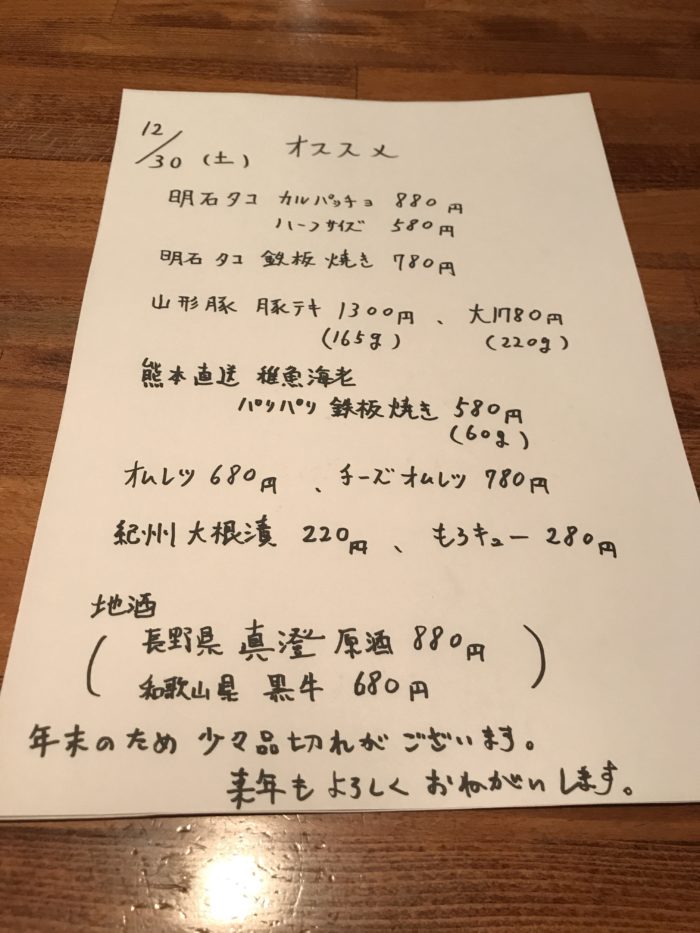 12/30 (土) オススメ
明石タコ カルパッチョ 880円
ハーフサイズ 580円
明石タコ 鉄板焼き 780円
山形豚 豚テキ 1300円、大1780円
(165g) (220g)
熊本直送 稚魚海老
パリパリ 鉄板焼き 580円
(60g)
オムレツ 680円、チーズオムレツ 780円
紀州大根漬 220円、もろキュー 280円
地酒
(長野県 真澄 原酒 880円
和歌山県 黒牛 680円)
年末のため 少々品切れがございます。
来年もよろしく おねがいします。